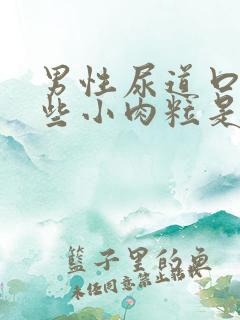 男性尿道口
些小肉粒是
篮子里的鱼
未经同意禁止转载